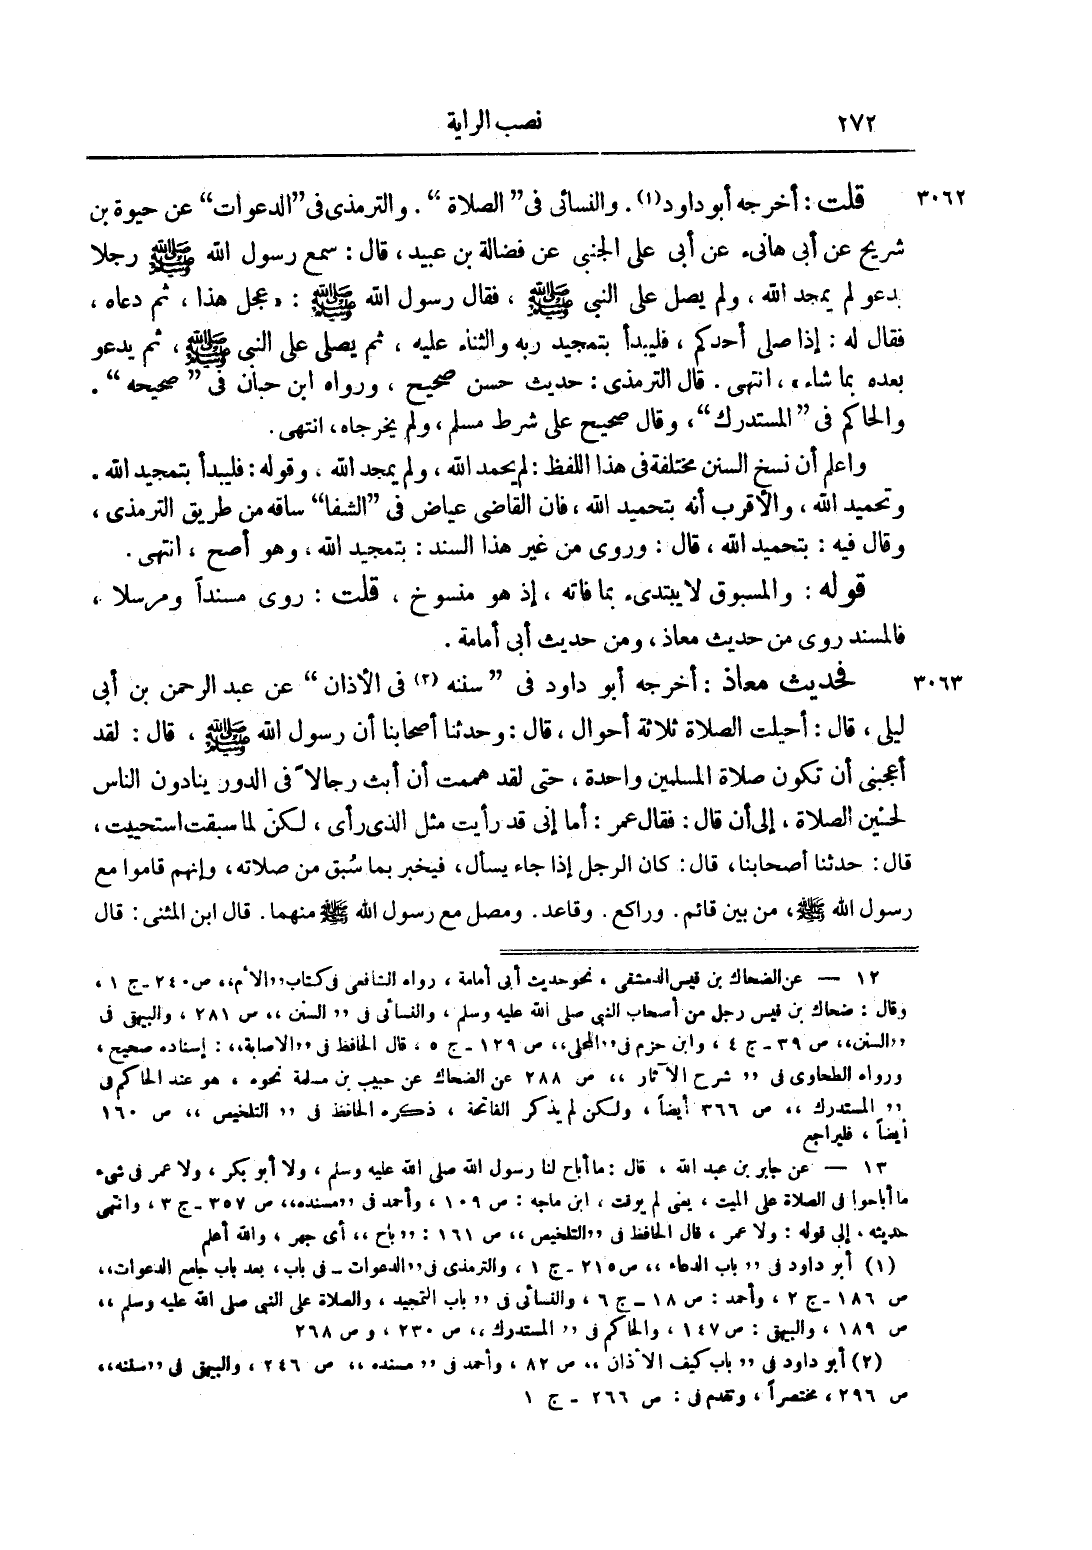 ٢٧٢ نصب الراية
٣٠٦٢ قلت : أخرجه أبو داود(١) . والنسائى فى " الصلاة " . والترمذى فى "الدعوات" عن حيوة بن
شريح عن أبى هانىء عن أبى على الجنبى عن فضالة بن عبيد ، قال : سمع رسول الله ﷺ رجلا
يدعو لم يمجد الله ، ولم يصل على النبى ﷺ ، فقال رسول الله ﷺ : « عجل هذا ، ثم دعاه ،
فقال له : إذا صلى أحدكم ، فليبدأ بتمجيد ربه والثناء عليه ، ثم يصلى على النبى ﷺ ، ثم يدعو
بعده بما شاء » ، انتهى . قال الترمذى : حديث حسن صحيح ، ورواه ابن حبان فى " صحيحه " .
والحاكم فى " المستدرك" ، وقال صحيح على شرط مسلم ، ولم يخرجاه ، انتهى .
واعلم أن نسخ السنن مختلفة فى هذا اللفظ : لم يحمد الله ، ولم يمجد الله . وقوله : فليبدأ بتمجيد الله .
وتحميد الله ، والأقرب أنه بتحميد الله ، فان القاضى عياض فى "الشفا" ساقه من طريق الترمذى ،
وقال فيه : بتحميد الله ، قال : وروى من غير هذا السند : بتمجيد الله ، وهو أصح ، انتهى .
قوله : والمسبوق لا يبتدىء بما فاته ، إذ هو منسوخ ، قلت : روى مسنداً ومرسلا ،
فالمسند روى من حديث معاذ ، ومن حديث أبى أمامة .
٣٠٦٣ فحديث معاذ : أخرجه أبو داود فى " سننه (٢) فى الأذان " عن عبد الرحمن بن أبى
ليلى ، قال : أحيلت الصلاة ثلاثة أحوال ، قال : وحدثنا أصحابنا أن رسول الله ﷺ ، قال : لقد
أعجبنى أن تكون صلاة المسلمين واحدة ، حتى لقد هممت أن أبث رجالاً فى الدور ينادون الناس
لحين الصلاة ، إلى أن قال : فقال عمر : أما إنى قد رأيت مثل الذى رأى ، لكن لما سبقت استحييت ،
قال : حدثنا أصحابنا، قال : كان الرجل إذا جاء يسأل، فيخبر بما سُبق من صلاته، وإنهم قاموا مع
رسول الله ﷺ، من بين قائم. وراكع. وقاعد. ومصل مع رسول الله ﷺ منهما. قال ابن المثنى: قال
١٢ — عن الضحاك بن قيس الدمشقى ، نحو حديث أبى أمامة ، رواه الشافعى فى كتاب ,,الأم،، ص ٢٤٠ـ ج ١ ،
وقال : ضحاك بن قيس رجل من أصحاب النبى صلى الله عليه وسلم ، والنسائى فى ,, السنن ،، ص ٢٨١ ، والبيهقى فى
,,السنن،، ص ٣٩ ـ ج ٤ ، وابن حزم فى ,,المحلى،، ص ١٢٩ ـ ج ٥ ، قال الحافظ فى ,,الاصابة،، : إسناده صحيح ،
ورواه الطحاوى فى ,, شرح الآثار ،، ص ٢٨٨ عن الضحاك عن حبيب بن مسلمة نحوه ، هو عند الحاكم فى
,, المستدرك ،، ص ٣٦٦ أيضاً ، ولكن لم يذكر الفاتحة ، ذكره الحافظ فى ,, التلخيص ،، ص ١٦٠
أيضاً ، فليراجع
١٣ — عن جابر بن عبد الله ، قال : ما أباح لنا رسول الله صلى الله عليه وسلم ، ولا أبو بكر ، ولا عمر فى شىء
ما أباحوا فى الصلاة على الميت ، يعنى لم يوقت ، ابن ماجه : ص ١٠٩ ، وأحمد فى ,,مسنده،، ص ٣٥٧ ـ ج ٣ ، وانتهى
حديثه ، إلى قوله : ولا عمر ، قال الحافظ فى ,,التلخيص ،، ص ١٦١ : ,,باح ،، أى جهر ، والله أعلم
(١) أبو داود فى ,, باب الدعاء ،، ص ٢١٥ ـ ج ١ ، والترمذى فى ,,الدعوات ـ فى باب ، بعد باب جامع الدعوات،،
ص ١٨٦ ـ ج ٢ ، وأحمد : ص ١٨ ـ ج ٦ ، والنسائى فى ,, باب التمجيد ، والصلاة على النبى صلى الله عليه وسلم ،،
ص ١٨٩ ، والبيهقى : ص ١٤٧ ، والحاكم فى ,, المستدرك ،، ص ٢٣٠ ، و ص ٢٦٨
(٢) أبو داود فى ,, باب كيف الأذان ،، ص ٨٢ ، وأحمد فى ,, مسنده ،، ص ٢٤٦ ، والبيهقى فى ,,سننه،،
ص ٢٩٦ ، مختصراً ، وتقدم فى : ص ٢٦٦ ـ ج ١